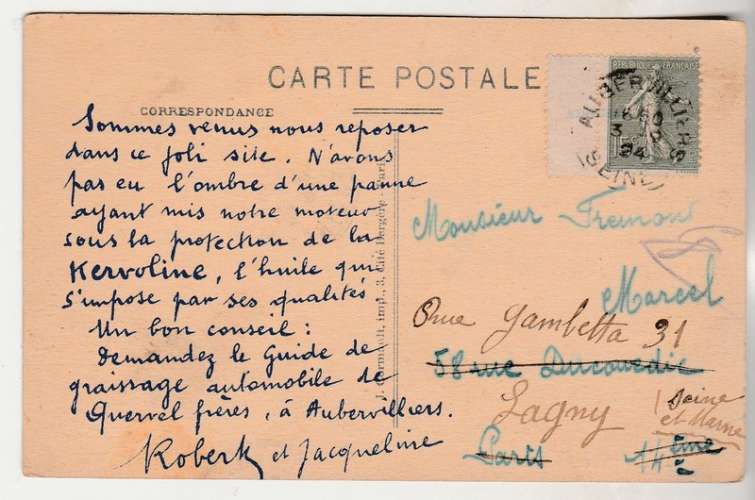 CARTE POSTALE
CORRESPONDANCE
Sommes venus nous reposer
dans ce joli site. N'avons
pas eu l'ombre d'une panne
ayant mis notre moteur
sous la protection de la
Kervoline, l'huile qui
s'impose par ses qualités
Un bon conseil :
Demandez le Guide de
graissage automobile de
Quervel frères, à Aubervilliers.
Robert et Jacqueline
imp., 3, Cité Bergère, Paris
REPUBLIQUE FRANÇAISE
AUBERVILLIERS
3
24
(SEINE)
Monsieur Fremont
Marcel
Rue Gambetta 31
58 rue Ducouedic
Lagny
Seine
et Marne
Paris 14ème